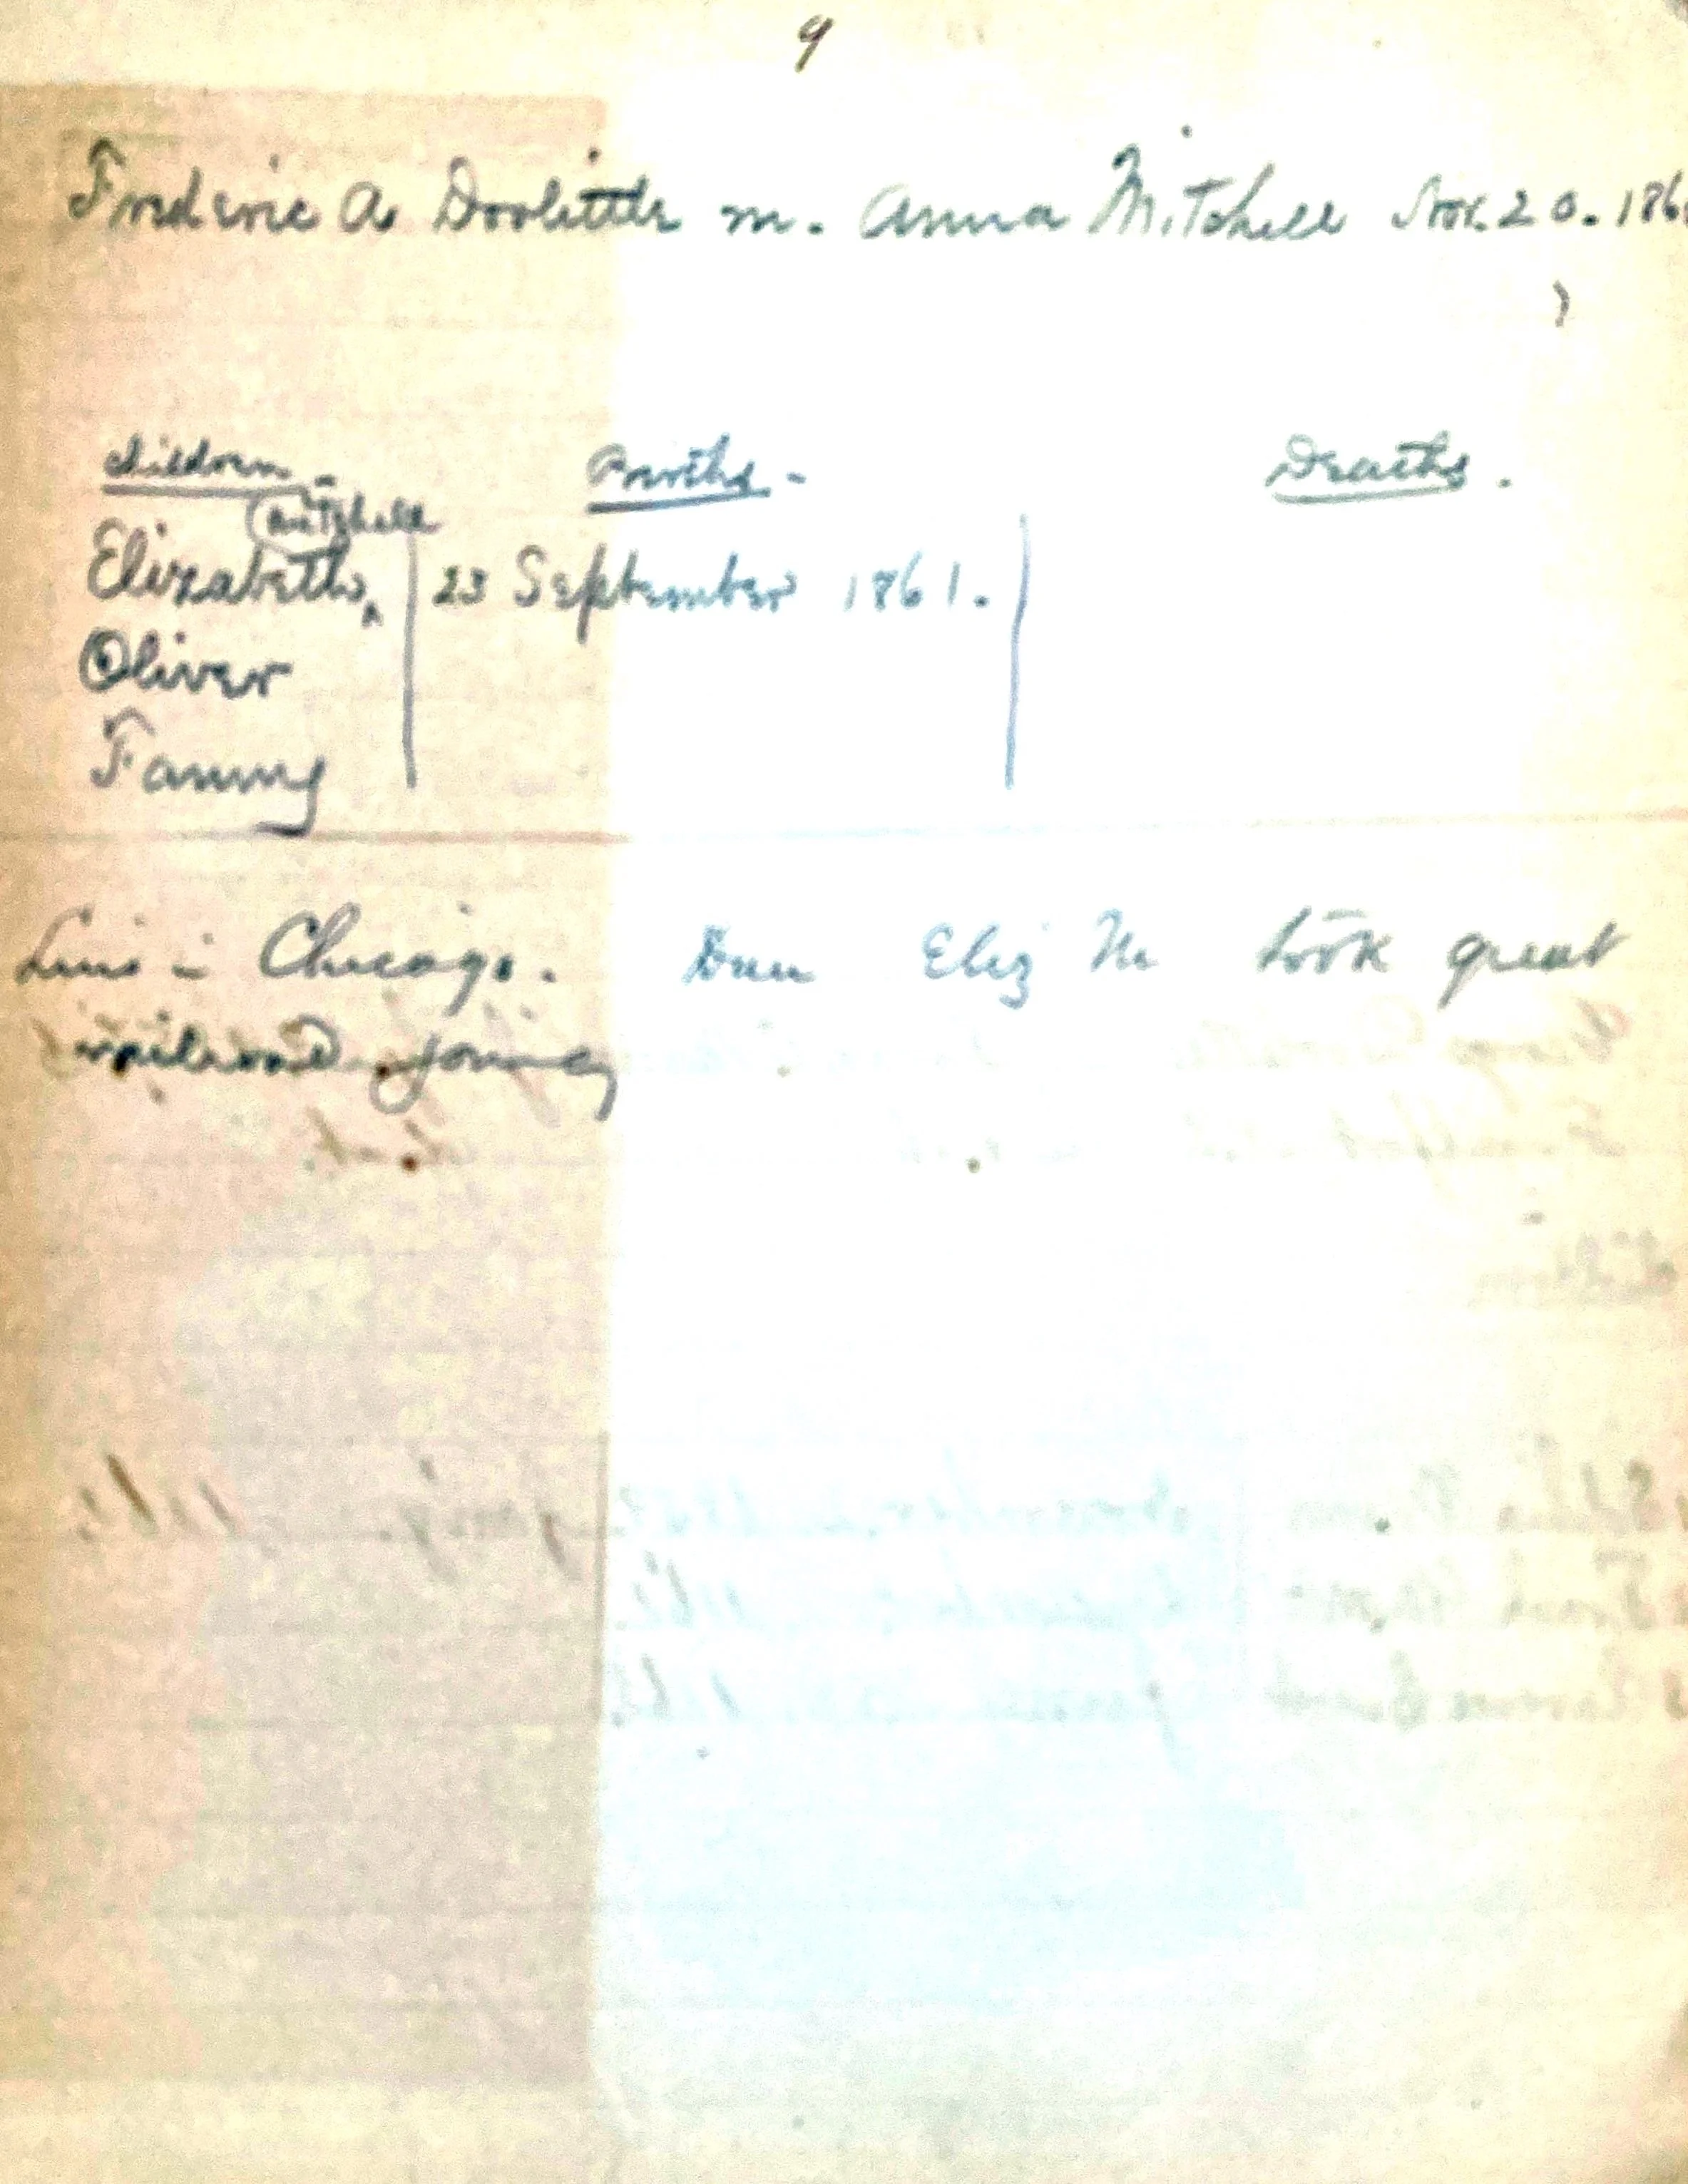 9
Frederic A Doolittle m. Anna Mitchell Nov. 20. 186
Children - Births - Deaths.
Mitchell
Elizabeth ^ 23 September 1861.
Oliver
Fanny
Live in Chicago. Dau Eliz M took great
railroad journey